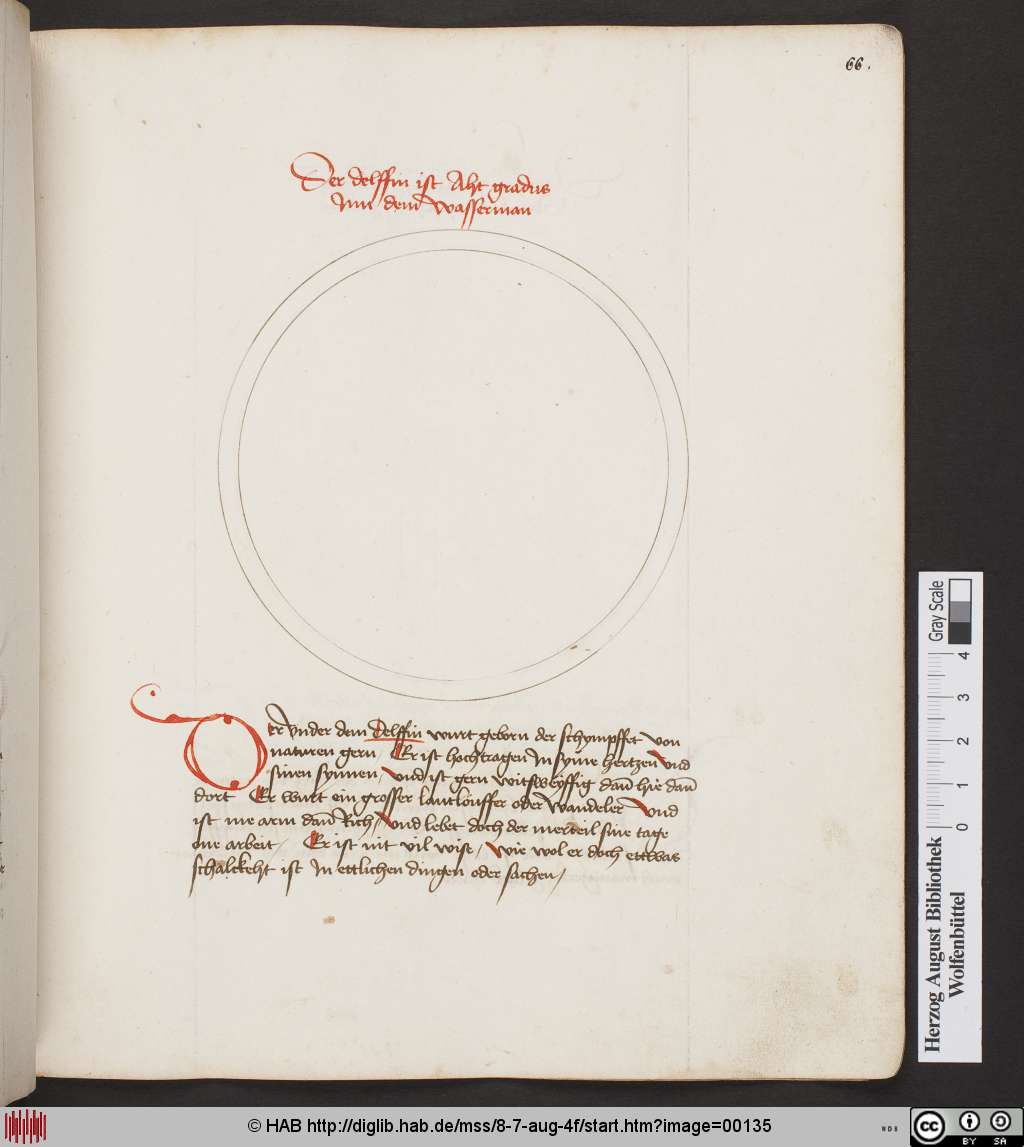 66.
Der delffin ist Aht gradus
Inn dem wasserman
Der vnder dem Delffin wurt geborn der schympffet von
naturen gern / Er ist hochtragen In syme hertzen vnd
sinen synnen / vnd ist gern witsweyffig dann hie dann
dort Er wurt ein grosser lantlouffer oder wandeler vnd
ist me arm dann Rich / vnd lebet doch der merteil sine tage
one arbeit / Er ist nit vil wise / wie wol er doch ettwas
schalckeht ist In ettlichen dingen oder sachen /
Herzog August Bibliothek
Wolfenbüttel
0 1 2 3 4
Gray Scale
© HAB http://diglib.hab.de/mss/8-7-aug-4f/start.htm?image=00135
WDB
cc BY SA